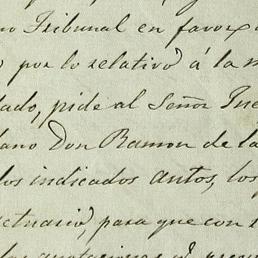 no Tribunal en favor
por lo relativo á la m
dado, pide al Señor Jue
dano Don Ramon de la
los indicados autos, los
actuario, para que con